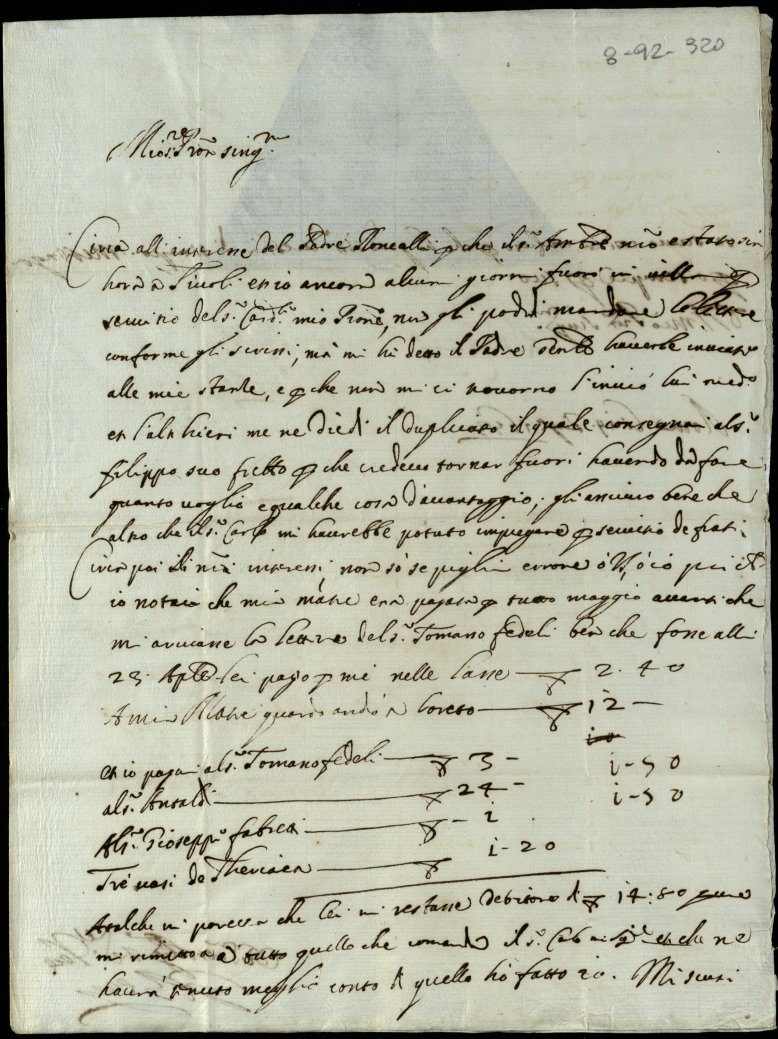 8-92-320
Mio s.re P.ron sing.re
Circa all'interesse del Padre Roncalli che il s.r Amb.re non è stato sin
hora à Tivoli et io ancora alcuni giorni fuori in villa
servitio del s.r Card.l mio P.rone, non gli podei mandare la lettera
conforme gli scrissi, mà mi hà detto il Padre haverle inviate
alle mie stanze, e che non mi ci trovorno l'inviò lui med.o
et l'altr'hieri me ne diedi il duplicato il quale consegnai al s.r
filippo suo f.rello che credevo tornar fuori havendo da fare
quanto voglio e qualche cosa d'avantaggio, gli assicuro bene che
altro che il s.r Carlo mi haverebbe potuto impiegare servitio de frati.
Circa poi ili n.ri interessi, non sò se piglia errore ò V.S. ò io poi ch'
io notai che mia matre era pagata tutto maggio avanti che
mi arivasse la lettera del s.r Tomano fedeli ben che fosse alli
23. Ap.le lei pagò me nelle casse 2.40
A mia Matre quando andò à Loreto 12 —
et io pagai al s.r Tomano fedeli 3 – 1-50
al s.r Antaldi 24 – 1-50
Al s.r Gioseppe fabretti – 1
Trè vasi de Theriaca 1-20
Atalche mi pareva che lei mi restasse debitore di 14:80
mi rimetto a à tutto quello che comanda il s.r Carlo che ne
haverà tenuto meglio conto di quello hò fatto io. Mi scusi